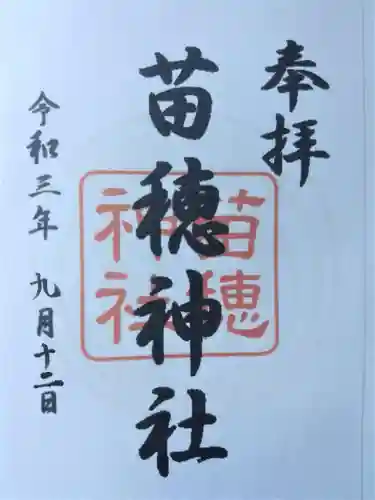 奉拝
苗穂神社
苗穂
神社
令和三年 九月十二日